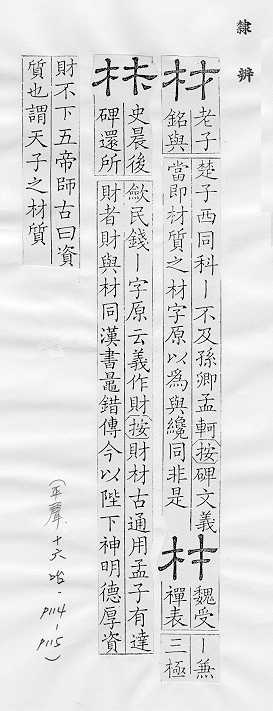 隸辨
材 老子
銘與
楚子西同科｜不及孫卿孟軻按碑文義
當即材質之材字原以為與纔同非是
材 魏受
禪表
｜兼
三極
材 史晨後
碑還所
歛民錢｜字原云義作財按財材古通用孟子有達
財者財與材同漢書鼂錯傳今以陛下神明德厚資
財不下五帝師古曰資
質也謂天子之材質
(平聲·十六咍·P114-P115)